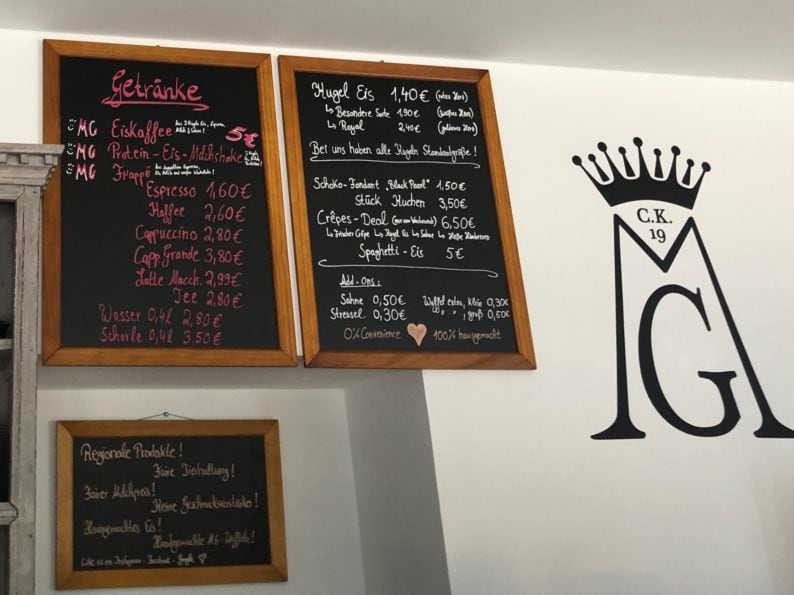 Getränke
MG Eiskaffee 5€
MG Protein-Eis-Milchshake
MG Frappé
Espresso 1,60€
Kaffee 2,60€
Cappuccino 2,80€
Capp. Grande 3,80€
Latte Macch. 2,99€
Tee 2,80€
Wasser 0,4l 2,80€
Schorle 0,4l 3,50€
Kugel Eis 1,40€ (rotes Herz)
↳ Besondere Sorte 1,90€ (weißes Herz)
↳ Royal 2,40€ (goldenes Herz)
Bei uns haben alle Kugeln Standardgröße!
Schoko-Fondant "Black Pearl" 1,50€
Stück Kuchen 3,50€
Crêpes-Deal 6,50€
↳ Frischer Crêpe ↳ Kugel Eis ↳ Sahne ↳ Heiße Himbeeren
Spaghetti-Eis 5€
Add-Ons:
Sahne 0,50€ Waffel extra, klein 0,30€
Streusel 0,30€ " ", groß 0,50€
0% Convenience 100% hausgemacht
C.K.
19
MG
Regionale Produkte!
Faire Tierhaltung!
Fairer Milchpreis!
Keine Geschmacksverstärker!
Hausgemachtes Eis!
Handgemachte MG-Waffeln!
Like us on Instagram - Facebook - Google